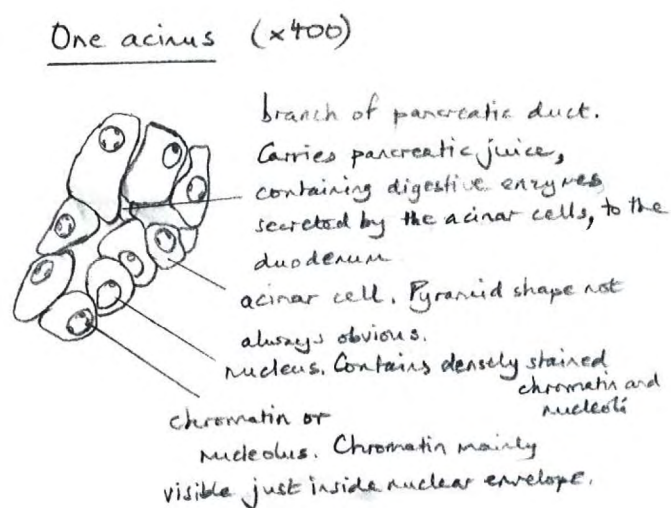 One acinus (×400)
branch of pancreatic duct.
Carries pancreatic juice,
containing digestive enzymes
secreted by the acinar cells, to the
duodenum
acinar cell. Pyramid shape not
always obvious.
nucleus. Contains densely stained
chromatin and
nucleoli
chromatin or
nucleolus. Chromatin mainly
visible just inside nuclear envelope.